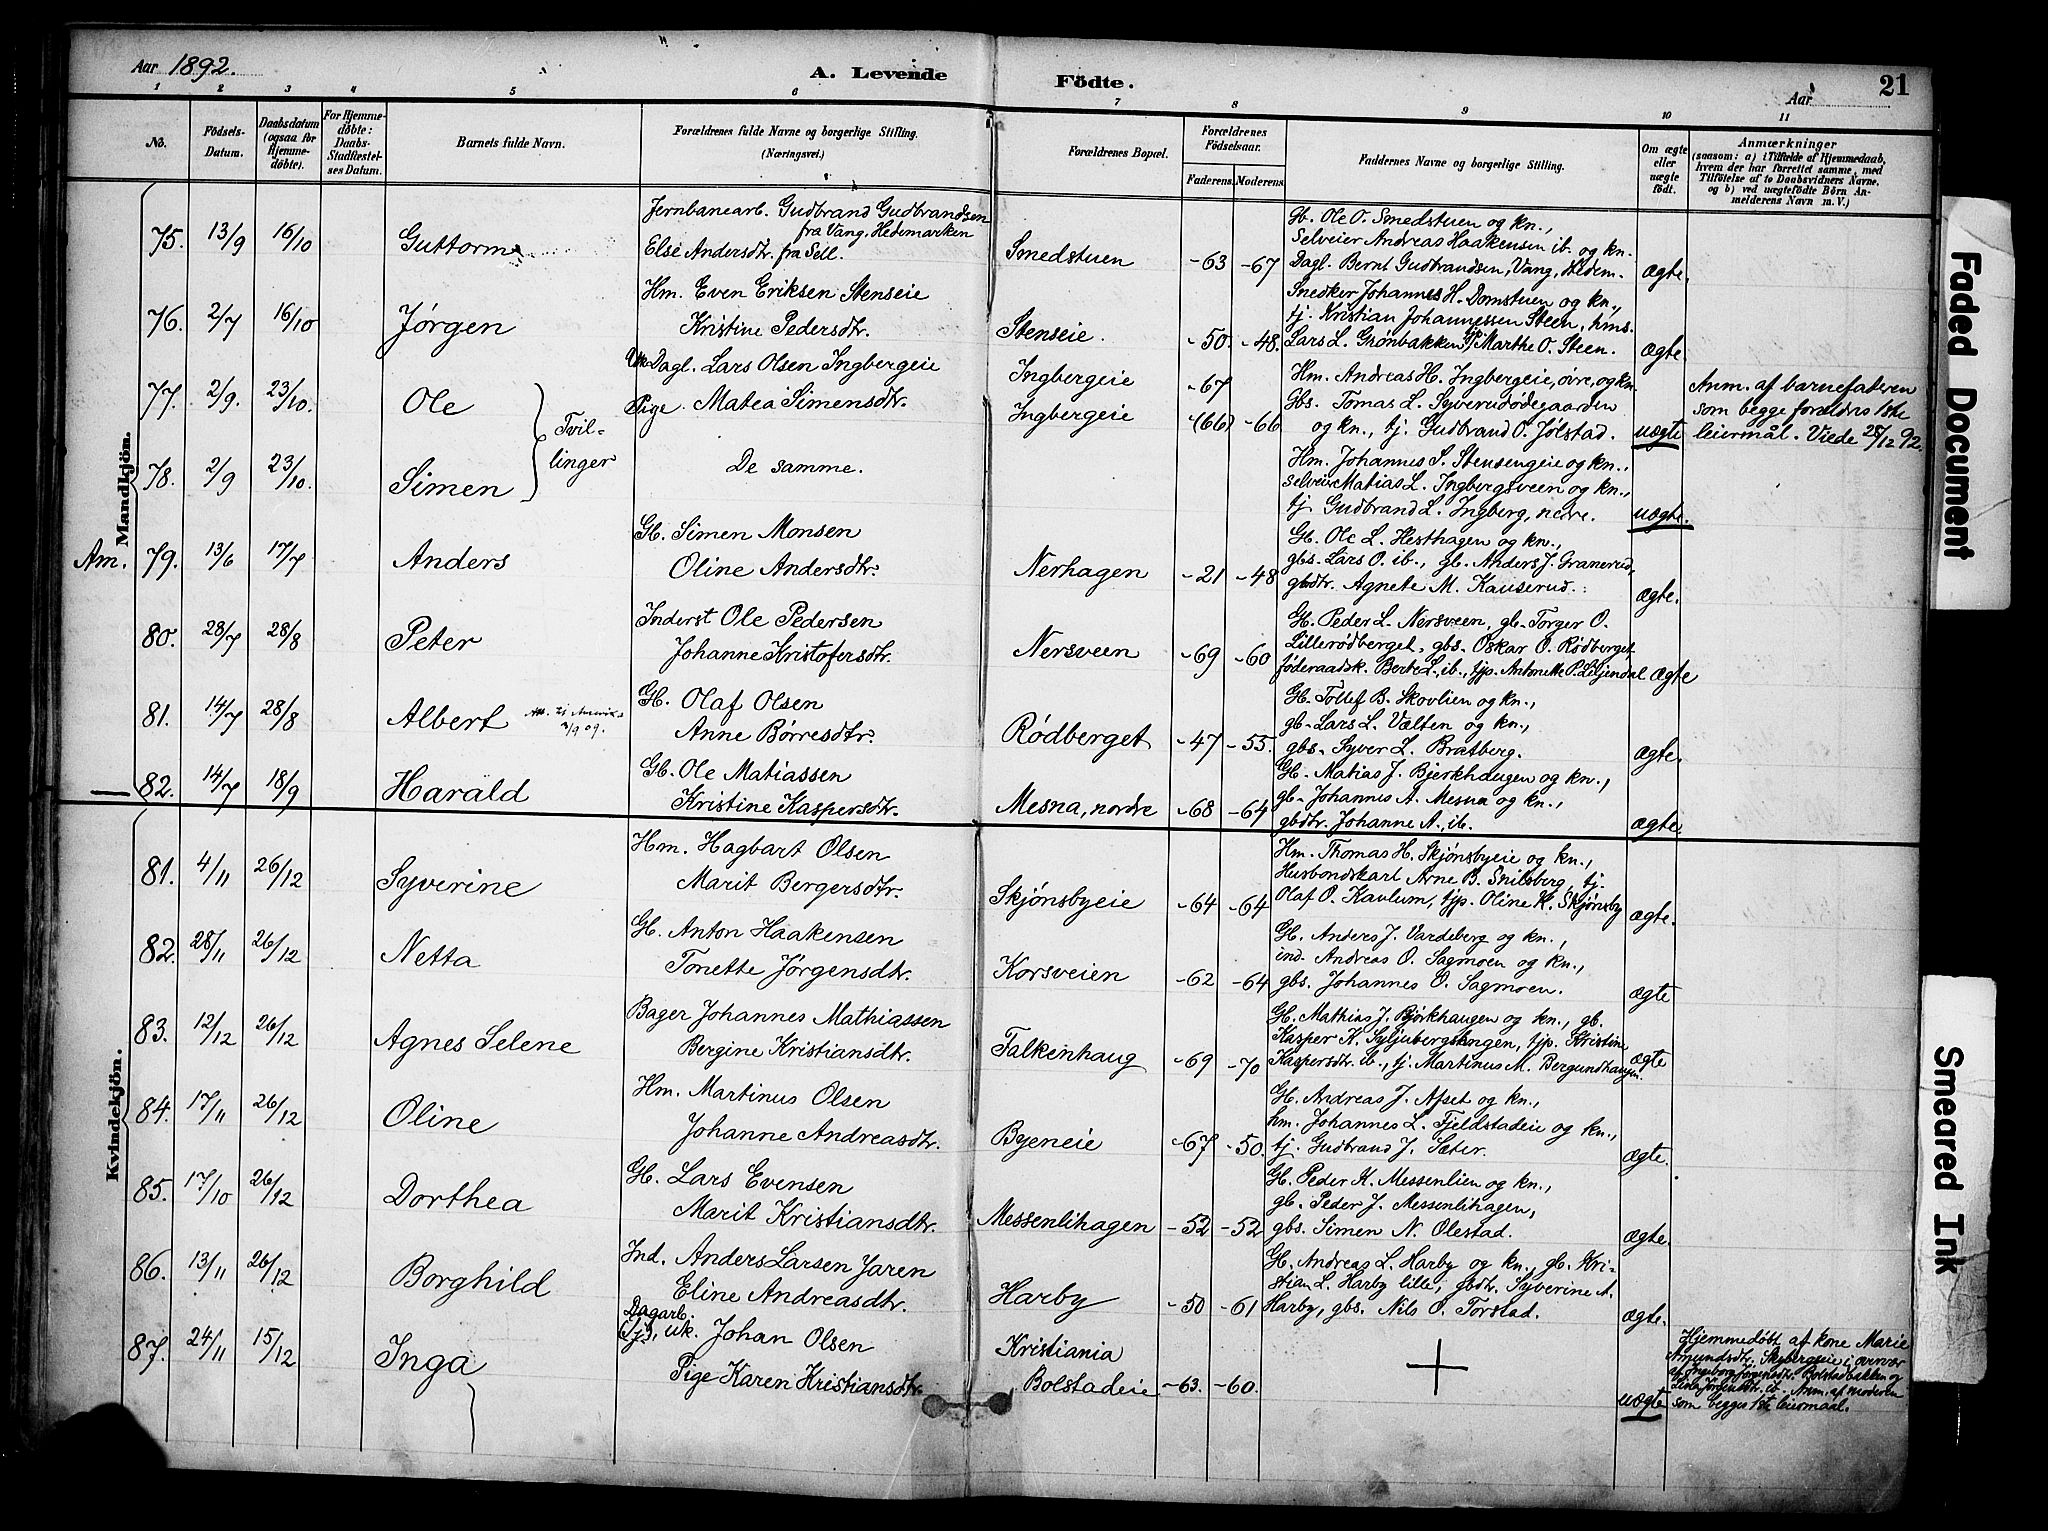 Aar 1892.
A. Levende Födte.
Aar
21
1 2 3 4 5 6 7 8 9 10 11
No.
Födsels-
Datum.
Daabsdatum
(ogsaa for
Hjemme-
döbte).
For Hjemme-
döbte:
Daabs-
Stadfæstel-
ses Datum.
Barnets fulde Navn.
Forældrenes fulde Navne og borgerlige Stilling.
(Næringsvei.)
Forældrenes Bopæl.
Forældrenes
Födselsaar.
Faderens. Moderens.
Faddernes Navne og borgerlige Stilling.
Om ægte
eller
uægte
födt.
Anmærkninger
(saasom: a) i Tilfælde af Hjemmedaab,
hvem der har forrettet samme, med
Tilföielse af to Daabsvidners Navne,
og b) ved uægtefödte Börn An-
melderens Navn m. V.)
Mandkjön.
75. 13/9 16/10 Guttorm
Jernbanearb. Gudbrand Gudbrandsen
fra Vang, Hedemarken
Else Andersdtr. fra Sell.
Smedstuen -63 -67
Gb. Ole O. Smedstuen og kn.,
Selveier Andreas Haakensen ib. og kn.
Dagl. Bernt Gudbrandsen, Vang, Hedem.
ægte.
76. 2/7 16/10 Jørgen
Hm. Even Eriksen Stenseie
Kristine Pedersdtr.
Stenseie. -50. -48.
Snedker Johannes H. Domstuen og kn.,
tj. Kristian Johannessen Steen, hms.
Lars L. Grønbakken, Marthe O. Steen.
ægte.
77. 2/9. 23/10. Ole
Tvil-
linger
Uk. Dagl. Lars Olsen Ingbergeie
Pige. Matea Simensdtr.
Ingbergeie -67
Ingbergeie (66) -66
Hm. Andreas H. Ingbergeie, øvre, og kn.
Gbs. Tomas L. Syverudødegaarden
og kn., tj. Gudbrand O. Jølstad.
uægte
Anm. af barnefaderen
som begge forældres 1ste
leiermål. Viede 28/12 92.
78. 2/9 23/10. Simen
De samme.
Hm. Johannes S. Stensengeie og kn.,
selveier Matias L. Ingbergsveen og kn.,
tj. Gudbrand L. Ingberg, nedre.
uægte.
Am. 79. 13/6 17/7 Anders
Gb. Simen Monsen
Oline Andersdtr.
Nerhagen -21 -48
Gb. Ole L. Hesthagen og kn.,
gbs. Lars O. ib., gb. Anders J. Granerud,
gbdtr. Agnete M. Kauserud.
ægte.
80. 28/7 28/8 Peter
Inderst Ole Pedersen
Johanne Kristofersdtr.
Nersveen -69 -60
Gb. Peder L. Nersveen, gb. Torger O.
Lillerødberget, gbs. Oskar O. Rødberget
føderaadsk. Berte L. ib., tjp. Antonette P. Liljendal
ægte
81. 14/7 28/8 Albert
3/9 09.
Gb. Olaf Olsen
Anne Børresdtr.
Rødberget -47 -55.
Gb. Tollef B. Skovlien og kn.,
gb. Lars L. Vælten og kn.,
gbs. Syver L. Bratberg.
ægte.
82. 14/7 18/9 Harald
Gb. Ole Matiassen
Kristine Kaspersdtr.
Mesna, nordre -68 -64
Gb. Matias J. Bjerkhaugen og kn.,
gb. Johannes A. Mesna og kn.,
gbdtr. Johanne A., ib.
ægte.
Kvindekjön.
81. 4/11 26/12 Syverine
Hm. Hagbart Olsen
Marit Bergersdtr.
Skjønsbyeie -64 -64
Hm. Thomas H. Skjønsbyeie og kn.,
Husbondskarl Arne B. Snilsberg, tj.
Olaf O. Kaulum, tjp. Oline K. Skjønsby
ægte.
82. 28/11 26/12 Netta
Gb. Anton Haakensen
Tonette Jørgensdtr.
Korsveien -62 -64
Gb. Anders J. Vardeberg og kn.,
ind. Andreas O. Sagmoen og kn.,
gbs. Johannes O. Sagmoen.
ægte
83. 12/12 26/12 Agnes Selene
Bager Johannes Mathiassen
Bergine Kristiansdtr.
Falkenhaug -69 -70
Gb. Mathias J. Bjørkhaugen og kn., gb.
Kasper K. Syljubergshagen, tjp. Kristine
Kaspersdtr. ib., tj. Martinus M. Bergundhaugen.
ægte
84. 17/11 26/12 Oline
Hm. Martinus Olsen
Johanne Andreasdtr.
Byeneie -67 -50.
Gb. Andreas J. Afset og kn.,
hm. Johannes L. Fjeldstadeie og kn.,
tj. Gudbrand J. Sæter.
ægte.
85. 17/10 26/12 Dorthea
Gb. Lars Evensen
Marit Kristiansdtr.
Messenlihagen -52 -52
Gb. Peder K. Messenlien og kn.,
gb. Peder J. Messenlihagen,
gbs. Simen N. Olestad.
ægte.
86. 13/11 26/12 Borghild
Ind. Anders Larsen Jaren
Eline Andreasdtr.
Harby -50 -61
Gb. Andreas L. Harby og kn., gb. Kri-
stian L. Harby lille, gbdtr. Syverine A.
Harby, gbs. Nils O. Torstad.
ægte.
87. 24/11 15/12 Inga
Dagarb.
(tj), uk. Johan Olsen
Pige Karen Kristiansdtr.
Kristiania
Bolstadeie -63. -60.
uægte
Hjemmedøbt af kone Marie
Amundsdtr. Skybergseie i overvær
af Ingeborg Jørgensdtr. Bolstadbakken og
ib. Anm. af moderen
som begges 1ste leiermaal.
Faded Document
Smeared Ink